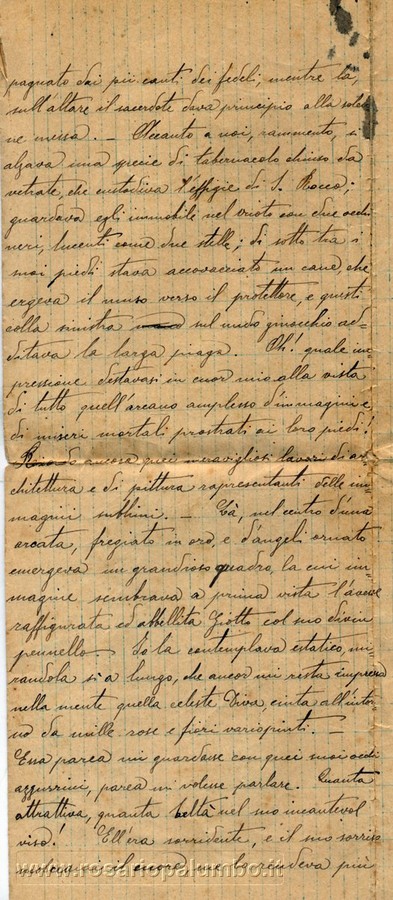 pagnato dai più canti dei fedeli, mentre là,
sull'altare il sacerdote dava principio alla solen
ne messa. — Accanto a noi, rammento, si
alzava una specie di tabernacolo chiuso da
vetrate, che custodiva l'effigie di S. Rocco;
guardava egli immobile nel vuoto con due occhi
neri, lucenti come due stelle; di sotto tra i
suoi piedi stava accovacciato un cane, che
ergeva il muso verso il protettore, e questi
colla sinistra sul nudo ginocchio ad-
ditava la larga piaga. Oh! quale im-
pressione destavasi in cuor mio alla vista
di tutto quell'arcano amplesso d'immagini e
di miseri mortali prostrati ai loro piedi!
ancora quei meravigliosi lavori di ar
chitettura e di pittura rapresentanti delle im-
magini sublimi. — Là, nel centro d'una
arcata, fregiato in oro, e d'angeli ornato
emergeva un grandioso quadro, la cui im-
magine sembrava a prima vista l'avesse
raffigurata ed abbellita Giotto col suo divin
pennello — Io la contemplava estatico, mi
randola sì a lungo, che ancor mi resta impressa
nella mente quella celeste Diva, cinta all'intor
no da mille rose e fiori variopinti. —
Essa parea mi guardasse con quei suoi occhi
azzurrini, parea mi volesse parlare. Quanta
attrattiva, quanta beltà nel suo incantevol
viso! Ell'era sorridente, e il suo sorriso
il cuore, me la rendeva più
www.rosariopalumbo.it